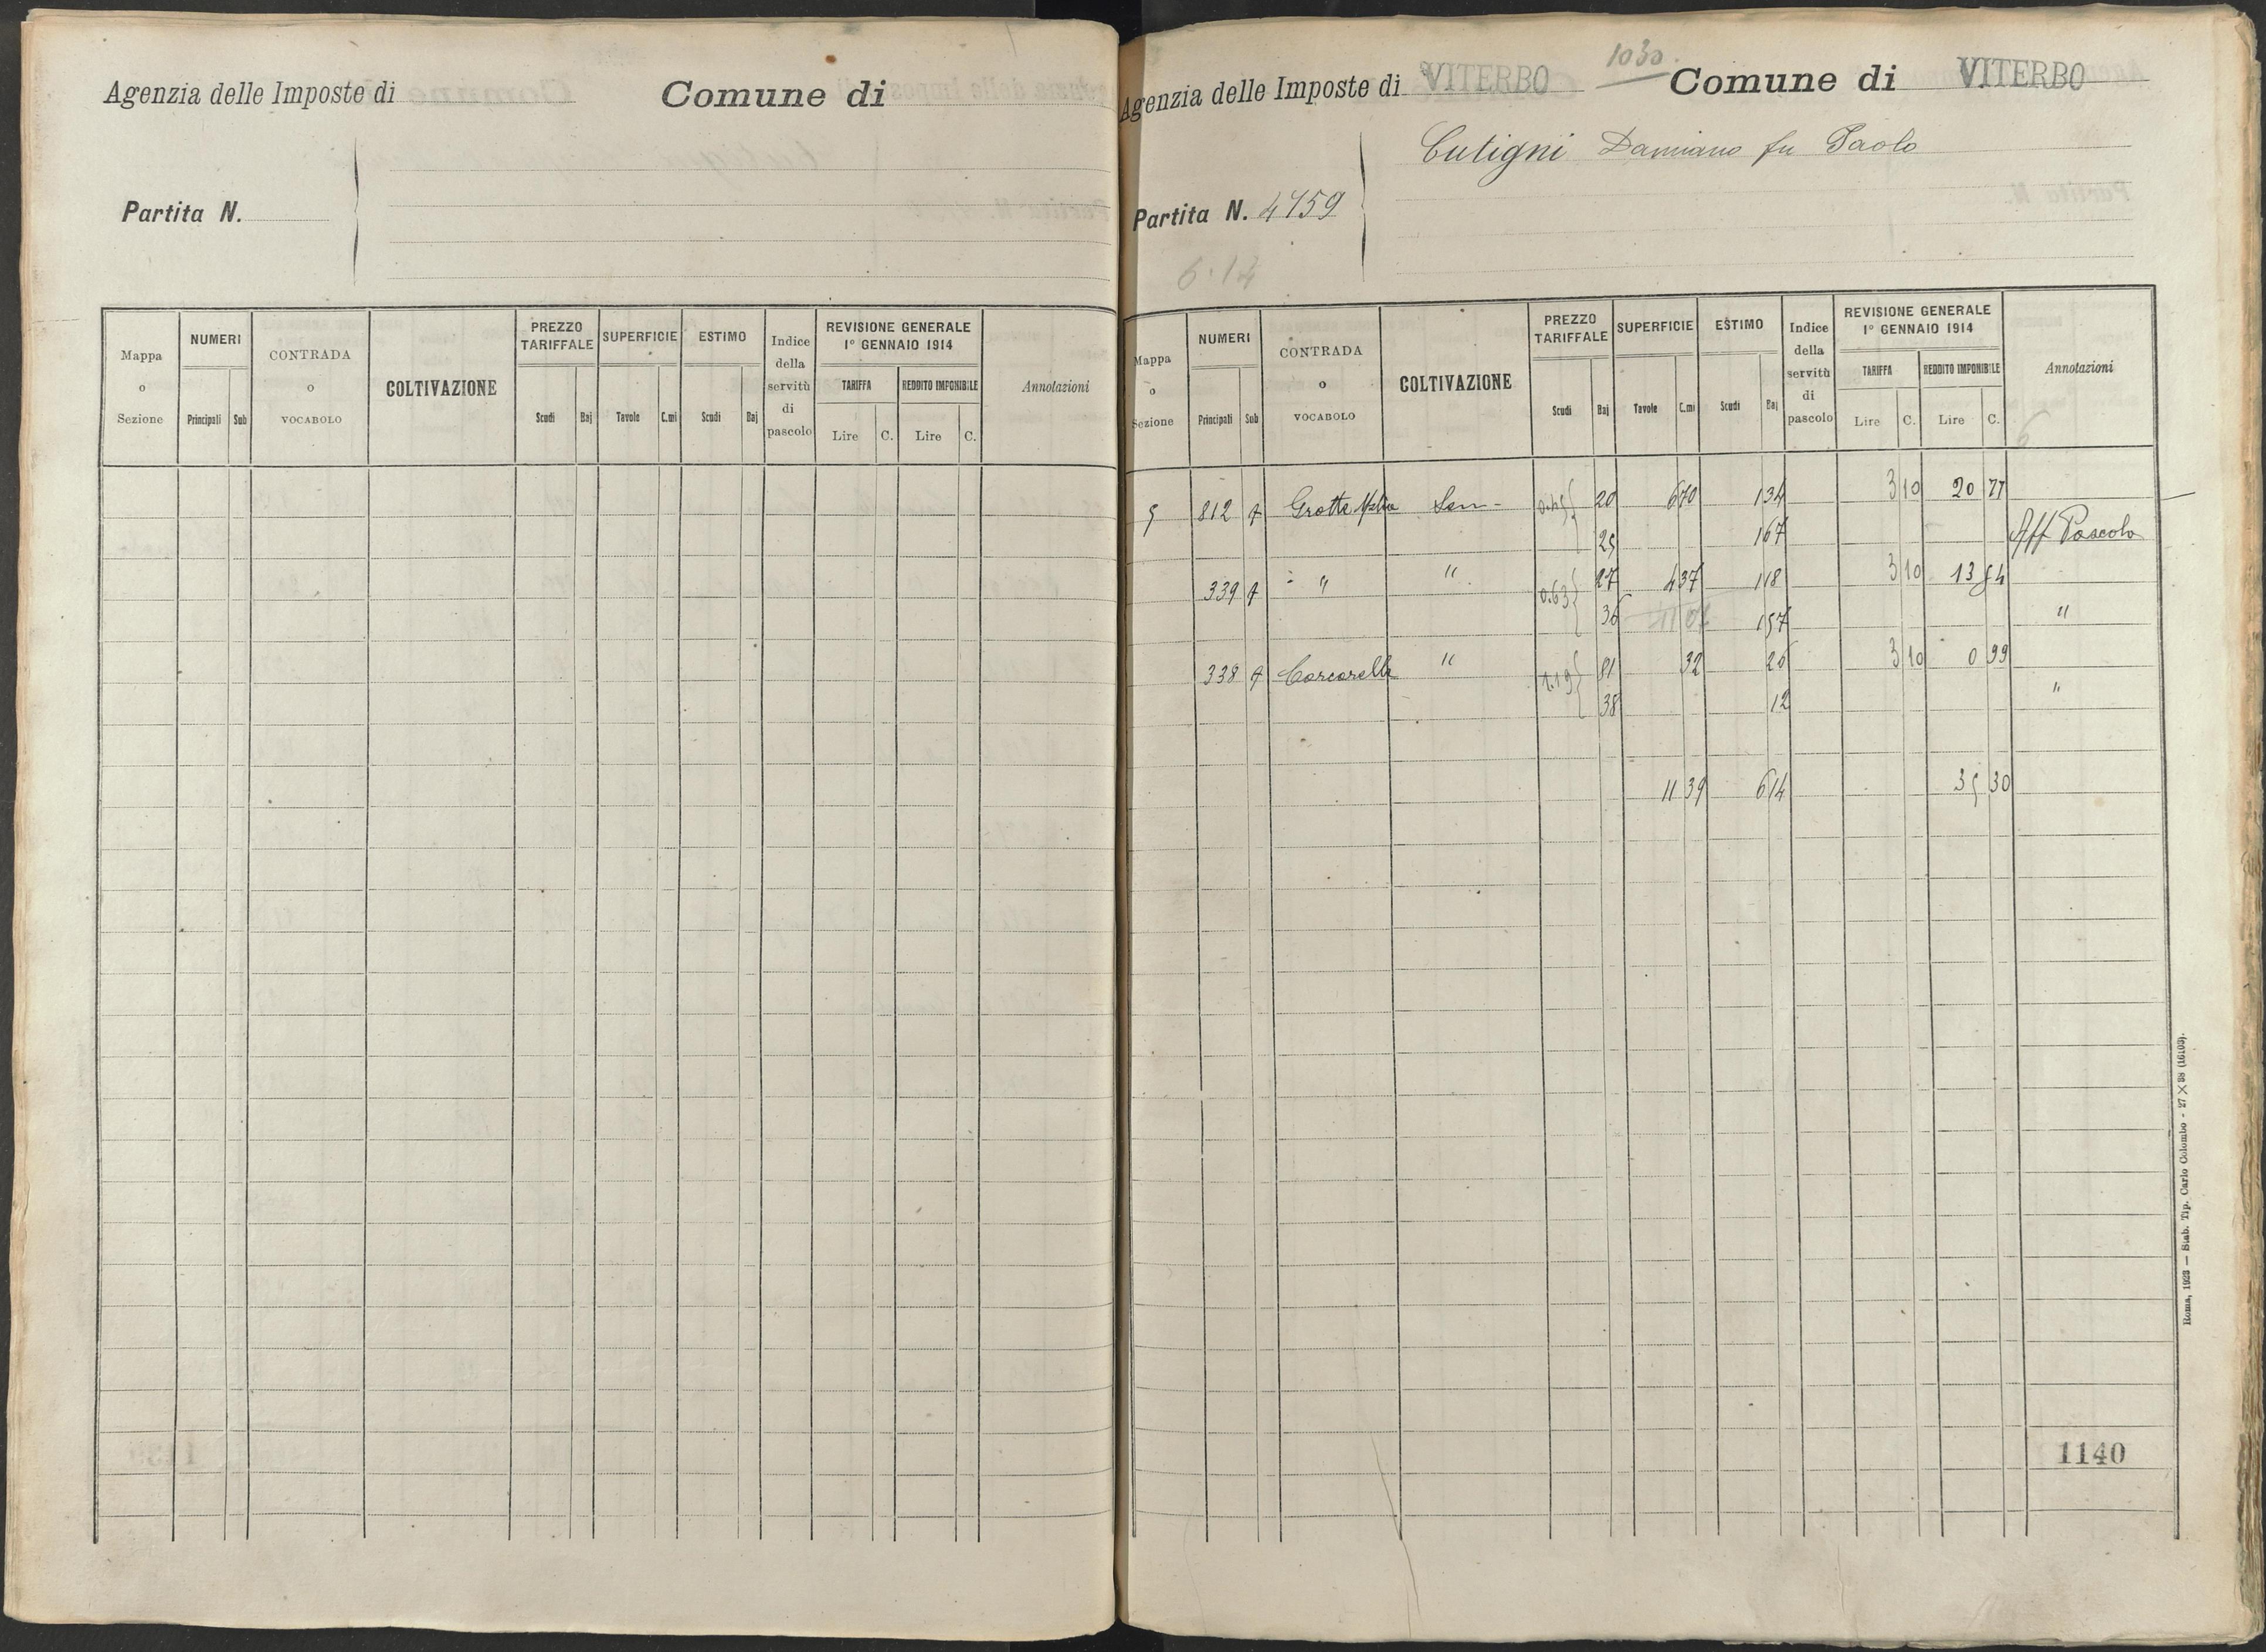 Agenzia delle Imposte di Comune di
Partita N.
Mappa o Sezione NUMERI Principali Sub CONTRADA o VOCABOLO COLTIVAZIONE PREZZO TARIFFALE Scudi Baj SUPERFICIE Tavole C.mi ESTIMO Scudi Baj Indice della servitù di pascolo REVISIONE GENERALE 1° GENNAIO 1914 TARIFFA Lire C. REDDITO IMPONIBILE Lire C. Annotazioni
1030.
Agenzia delle Imposte di VITERBO Comune di VITERBO
Cutigni Damiano fu Paolo
Partita N. 4759
6.14
Mappa o Sezione NUMERI Principali Sub CONTRADA o VOCABOLO COLTIVAZIONE PREZZO TARIFFALE Scudi Baj SUPERFICIE Tavole C.mi ESTIMO Scudi Baj Indice della servitù di pascolo REVISIONE GENERALE 1° GENNAIO 1914 TARIFFA Lire C. REDDITO IMPONIBILE Lire C. Annotazioni
5 812 Grotte Sem- 0.45 20 6 70 1 34 3 10 20 77
25 1 67 Aff Pascolo
339 " " 0.63 27 4 37 1 18 3 10 13 54
36 11 07 1 57 "
338 Carcarelle " 1.19 81 32 26 3 10 0 99
38 12 "
11 39 6 14 35 30
1140
Roma, 1923 — Stab. Tip. Carlo Colombo - 27 X 38 (16103).